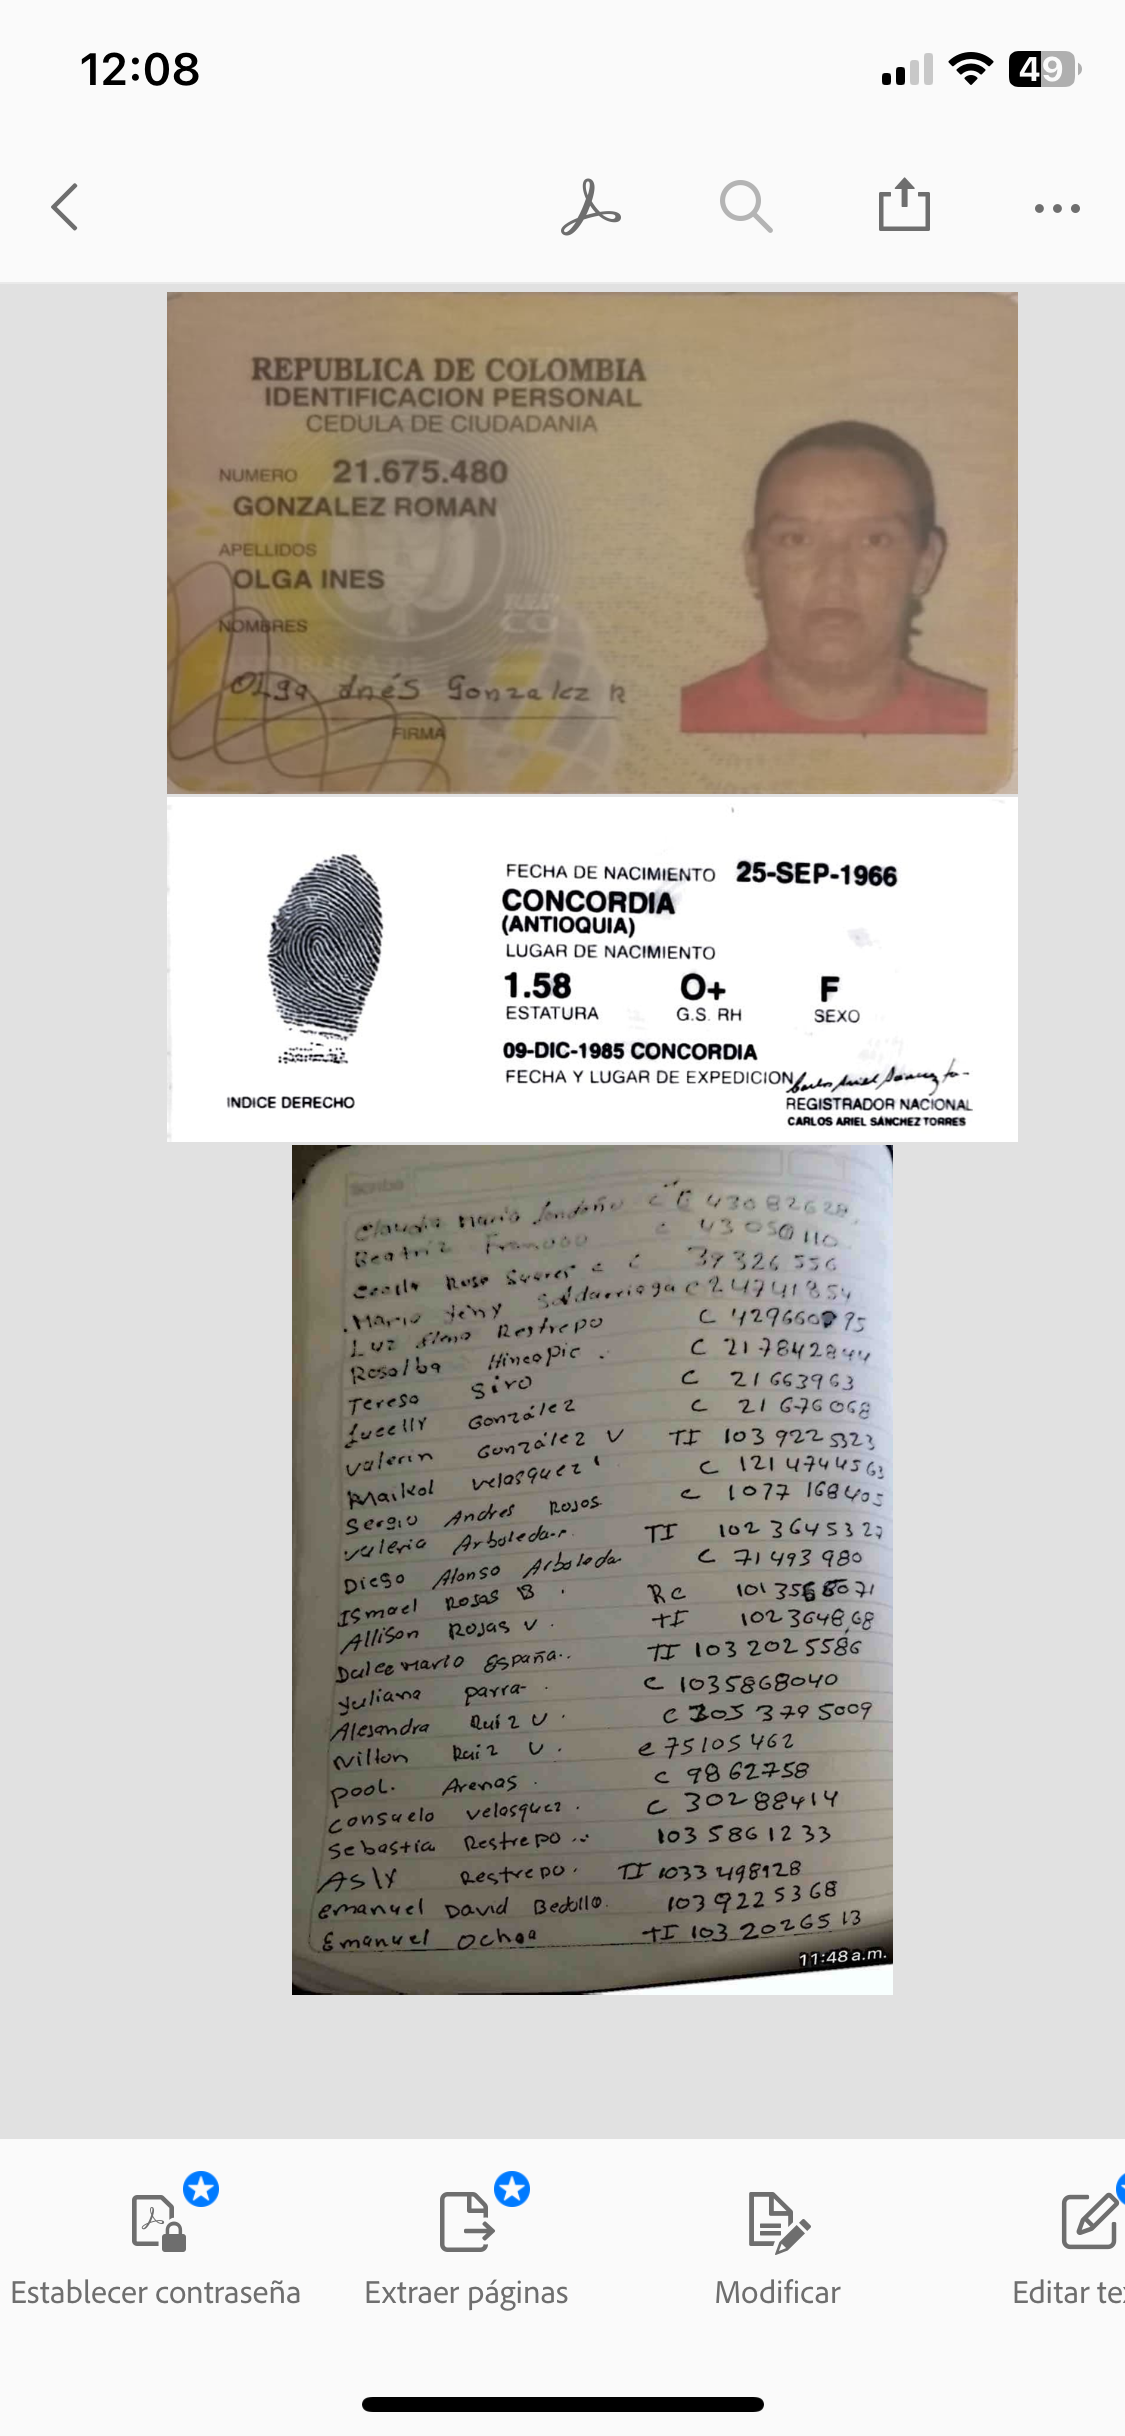 12:08
49
REPUBLICA DE COLOMBIA
IDENTIFICACION PERSONAL
CEDULA DE CIUDADANIA
NUMERO 21.675.480
GONZALEZ ROMAN
APELLIDOS
OLGA INES
NOMBRES
Olga Inés Gonzalez R
FIRMA
FECHA DE NACIMIENTO 25-SEP-1966
CONCORDIA
(ANTIOQUIA)
LUGAR DE NACIMIENTO
1.58 O+ F
ESTATURA G.S. RH SEXO
09-DIC-1985 CONCORDIA
FECHA Y LUGAR DE EXPEDICION
INDICE DERECHO
REGISTRADOR NACIONAL
CARLOS ARIEL SÁNCHEZ TORRES
Claudia Maria Londoño 43082628
Beatriz 43050110
Rosa Suarez c 39326556
Maria Yeny Saldarriaga c 24741854
Luz Elena Restrepo C
Rosalba Hincapie C
Teresa Siro C 21663963
Lucelly González C 21676068
Valerin González V TI 1039225323
Maikol Velasquez C 1214744563
Sergio Andres Rojas c 1077168405
Valeria Arboleda TI 1023645327
Diego Alonso Arboleda C 71493980
Ismael Rosas B. RC
Allison Rojas V. TI 1023648,68
Dulce Maria España.. TI 1032025586
Yuliana Parra C 1035868040
Alejandra Ruiz V. C 3795009
Ruiz V. c 75105462
Pool. Arenas. C 9862758
Consuelo Velasquez. C 30288414
Sebastia Restrepo 1035861233
Asly Restrepo. TI 1033498128
emanuel David Bedollo. 1039225368
Emanuel Ochoa TI 1032026513
11:48 a.m.
Establecer contraseña
Extraer páginas
Modificar
Editar te